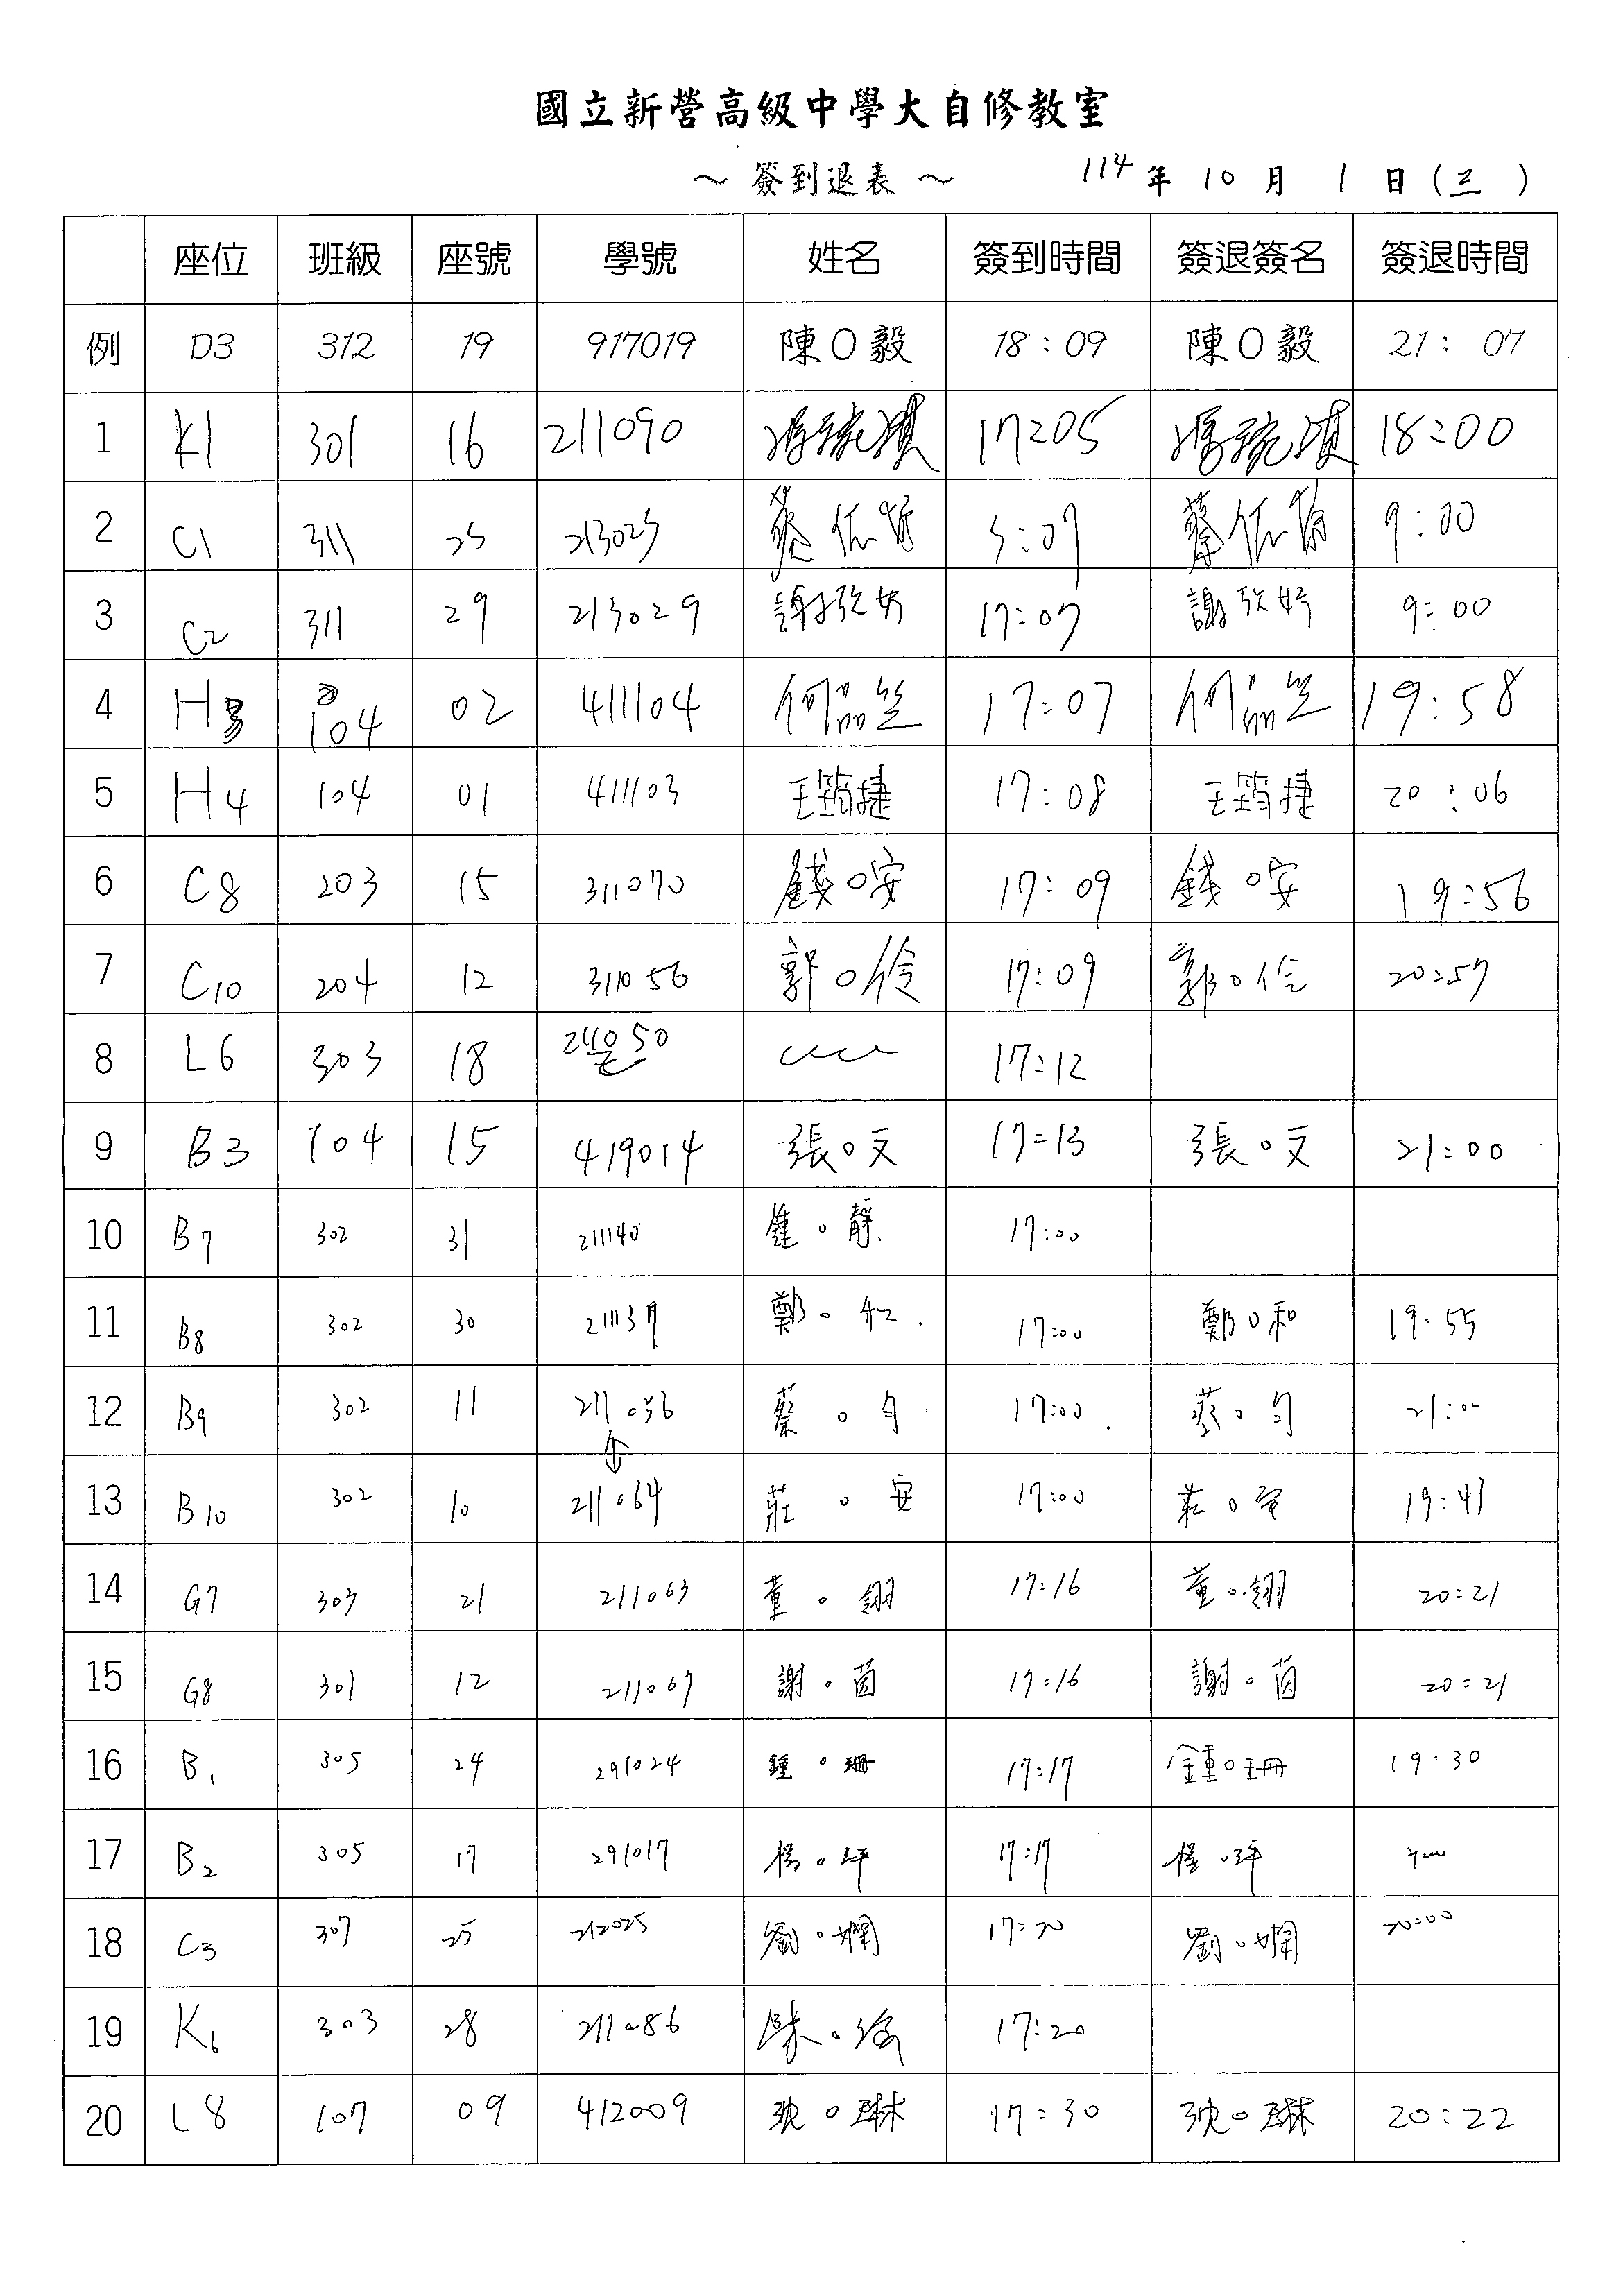 國立新營高級中學大自修教室
～ 簽到退表 ～ 114 年 10 月 1 日 (三)
座位 班級 座號 學號 姓名 簽到時間 簽退簽名 簽退時間
例 D3 312 19 917019 陳O毅 18:09 陳O毅 21:07
1 K1 301 16 211090 17:05 18:00
2 C1 311 25 213025 蔡依 5:07 蔡依 9:00
3 C2 311 29 213029 謝 17:07 謝 9:00
4 H3 104 02 411104 何品 17:07 何品 19:58
5 H4 104 01 411103 王筠捷 17:08 王筠捷 20:06
6 C8 203 15 311070 錢O安 17:09 錢O安 19:56
7 C10 204 12 311056 郭O伶 17:09 郭O伶 20:57
8 L6 303 18 17:12
9 B3 104 15 419014 張O文 17:13 張O文 21:00
10 B7 302 31 211140 鍾O靜 17:00
11 B8 302 30 211137 鄭O和 17:00 鄭O和 19:55
12 B9 302 11 211056 蔡O 17:00 蔡O 21:00
13 B10 302 10 211064 莊O安 17:00 莊O安 19:41
14 G7 303 21 211063 董O翎 17:16 董O翎 20:21
15 G8 301 12 211067 謝O茵 17:16 謝O茵 20:21
16 B1 305 24 291024 鍾O珊 17:17 鍾O珊 19:30
17 B2 305 17 291017 楊O坪 17:17 楊O坪
18 C3 307 25 212025 劉O嫻 17:20 劉O嫻 20:00
19 K6 303 28 211086 陳O 17:20
20 L8 107 09 412009 沈O琳 17:30 沈O琳 20:22